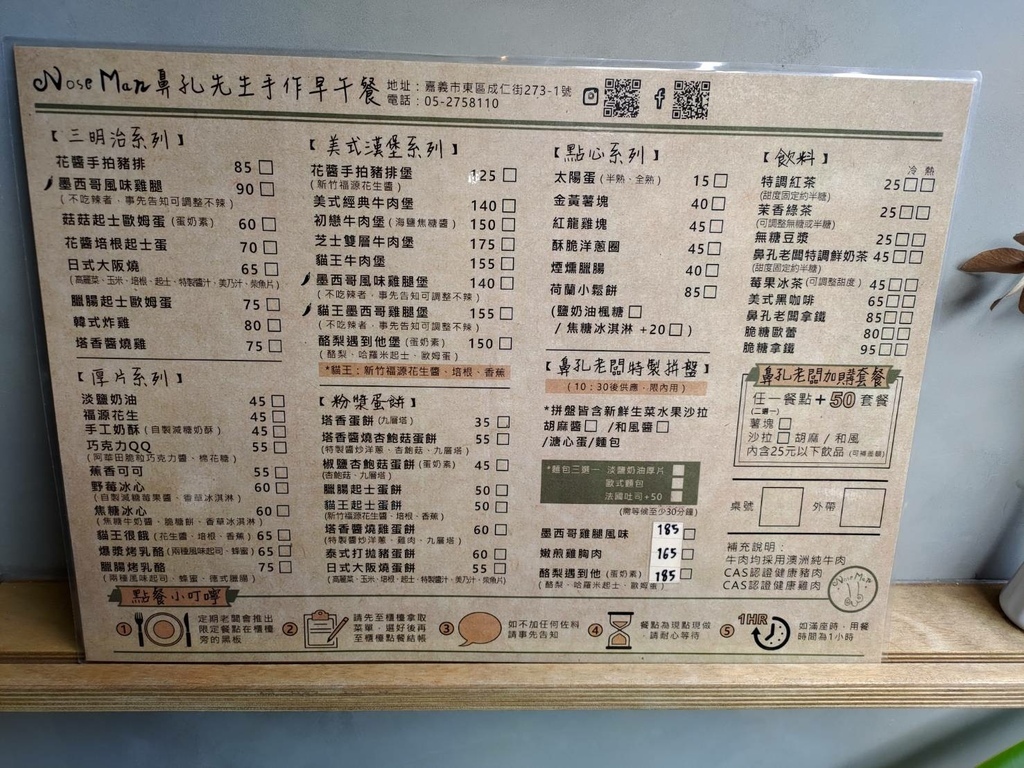 Nose Man 鼻孔先生手作早午餐
地址：嘉義市東區成仁街273-1號
電話：05-2758110
【三明治系列】
花醬手拍豬排 85
墨西哥風味雞腿 90
(不吃辣者，事先告知可調整不辣)
菇菇起士歐姆蛋(蛋奶素) 60
花醬培根起士蛋 70
日式大阪燒 65
(高麗菜、玉米、培根、起士、特製醬汁、美乃汁、柴魚片)
臘腸起士歐姆蛋 75
韓式炸雞 80
塔香醬燒雞 75
【厚片系列】
淡鹽奶油 45
福源花生 45
手工奶酥(自製減糖奶酥) 45
巧克力QQ 55
(阿華田脆粒巧克力醬、棉花糖)
蕉香可可 55
野莓冰心 60
(自製減糖莓果醬、香草冰淇淋)
焦糖冰心 60
(焦糖牛奶醬、脆糖餅、香草冰淇淋)
貓王很餓(花生醬、培根、香蕉) 65
爆漿烤乳酪(兩種風味起司、蜂蜜) 65
臘腸烤乳酪 75
(兩種風味起司、蜂蜜、德式臘腸)
【美式漢堡系列】
花醬手拍豬排堡 125
(新竹福源花生醬)
美式經典牛肉堡 140
初戀牛肉堡(海鹽焦糖醬) 150
芝士雙層牛肉堡 175
貓王牛肉堡 155
墨西哥風味雞腿堡 140
(不吃辣者，事先告知可調整不辣)
貓王墨西哥雞腿堡 155
(不吃辣者，事先告知可調整不辣)
酪梨遇到他堡(蛋奶素) 150
(酪梨、哈羅米起士、歐姆蛋)
*貓王：新竹福源花生醬、培根、香蕉
【粉漿蛋餅】
塔香蛋餅(九層塔) 35
塔香醬燒杏鮑菇蛋餅 55
(特製醬炒洋蔥、杏鮑菇、九層塔)
椒鹽杏鮑菇蛋餅(蛋奶素) 45
(杏鮑菇、九層塔)
臘腸起士蛋餅 50
貓王起士蛋餅 50
(新竹福源花生醬、培根、香蕉)
塔香醬燒雞蛋餅 60
(特製醬炒洋蔥、雞肉、九層塔)
泰式打拋豬蛋餅 60
日式大阪燒蛋餅 55
(高麗菜、玉米、培根、起士、特製醬汁、美乃汁、柴魚片)
【點心系列】
太陽蛋(半熟、全熟) 15
金黃薯塊 40
紅龍雞塊 45
酥脆洋蔥圈 45
煙燻臘腸 40
荷蘭小鬆餅 85
(鹽奶油楓糖
/焦糖冰淇淋 +20)
【鼻孔老闆特製拼盤】
(10：30後供應，限內用)
*拼盤皆含新鮮生菜水果沙拉
胡麻醬 /和風醬
/溏心蛋/麵包
*麵包三選一 淡鹽奶油厚片
歐式麵包
法國吐司+50
(需等候至少30分鐘)
墨西哥雞腿風味 185
嫩煎雞胸肉 165
酪梨遇到他(蛋奶素) 185
(酪梨、哈羅米起士、歐姆蛋)
【飲料】
冷 熱
特調紅茶 25
(甜度固定約半糖)
茉香綠茶 25
(可調整無糖或半糖)
無糖豆漿 25
鼻孔老闆特調鮮奶茶 45
(甜度固定約半糖)
莓果冰茶(可調整甜度) 45
美式黑咖啡 65
鼻孔老闆拿鐵 85
脆糖歐蕾 80
脆糖拿鐵 95
鼻孔老闆加購套餐
任一餐點+50套餐
(二選一)
薯塊
沙拉 胡麻 / 和風
內含25元以下飲品(可補差額)
桌號 外帶
補充說明：
牛肉均採用澳洲純牛肉
CAS認證健康豬肉
CAS認證健康雞肉
Nose Man
點餐小叮嚀
① 定期老闆會推出
限定餐點在櫃檯
旁的黑板
② 請先至櫃檯拿取
菜單，選好後再
至櫃檯點餐結帳
③ 如不加任何佐料
請事先告知
④ 餐點為現點現做
，請耐心等待
⑤ 1HR 如滿座時，用餐
時間為1小時